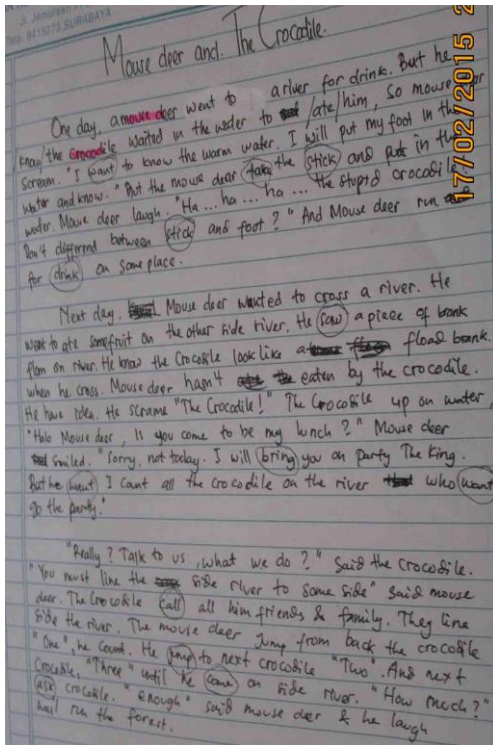 Jl. Jemur
Telp. 8415073 SURABAYA
Mouse deer and The Crocodile.
17/02/2015 2
One day, a mouse deer went to a river for drink. But he
know/the Crocodile waited in the water to /ate/him, So mouse deer
scream. "I want to know the warm water. I will put my foot in the
water and know." But the mouse dear take the stick and put in the
water. Mouse deer laugh. "Ha ... ha ... ha ... the stupid crocodile.
Don't differend between stick and foot?" And Mouse deer run
for drink on some place.
Next day, Mouse deer wanted to cross a river. He
want to ate somefruit on the other side river. He saw a piece of brank
flom on river. He know the Crocodile look like a float brank.
when he cross. Mouse deer hasn't eaten by the crocodile.
He have idea. He scrame "The Crocodile!" The Crocodile up on water,
"Halo Mouse deer, Is you come to be my lunch?" Mouse deer
smiled. "Sorry, not today. I will bring you on party The King.
But he want I count all the crocodile on the river who want
go the party."
"Really? Talk to us, what we do?" Said the crocodile.
"You must line the side river to some side" said mouse
deer. The Crocodile call all him friends & family. They line
side the river. The mouse deer Jump from back the crocodile
"One", he count. He jump to next crocodile "Two". And next
Crocodile, "Three" until he come on side river. "How much?"
ask crocodile. "enough" said mouse deer & he laugh
run the forest.